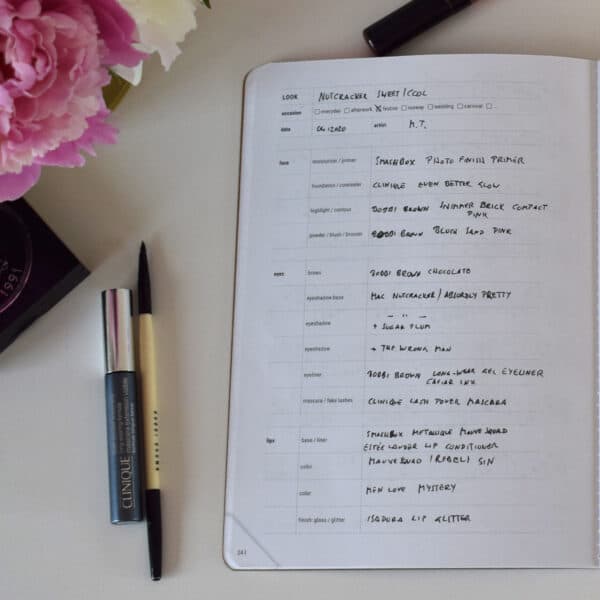 LOOK NUTCRACKER SWEET/COOL
occasion everyday afterwork festive runway wedding carnival
date 06 12020 artist M.T.
face moisturiser / primer SMASHBOX PHOTO FINISH PRIMER
foundation / concealer CLINIQUE EVEN BETTER GLOW
highlight / contour BOBBI BROWN SHIMMER BRICK COMPACT
PINK
powder / blush / bronzer BOBBI BROWN BLUSH SAND PINK
eyes brows BOBBI BROWN CHOCOLATE
eyeshadow base MAC NUTCRACKER / ABSURDLY PRETTY
eyeshadow + SUGAR PLUM
eyeshadow + THE WRONG MAN
eyeliner BOBBI BROWN LONG-WEAR GEL EYELINER
CAVIAR INK
mascara / fake lashes CLINIQUE LASH POWER MASCARA
lips base / liner SMASHBOX METALLIQUE MAUVE SQUAD
ESTÉE LAUDER LIP CONDITIONER
color MAUVE SQUAD / (REBEL) SIN
color MEN LOVE MYSTERY
finish: gloss / glitter ISADORA LIP GLITTER
241
CLINIQUE
BOBBI BROWN
1991